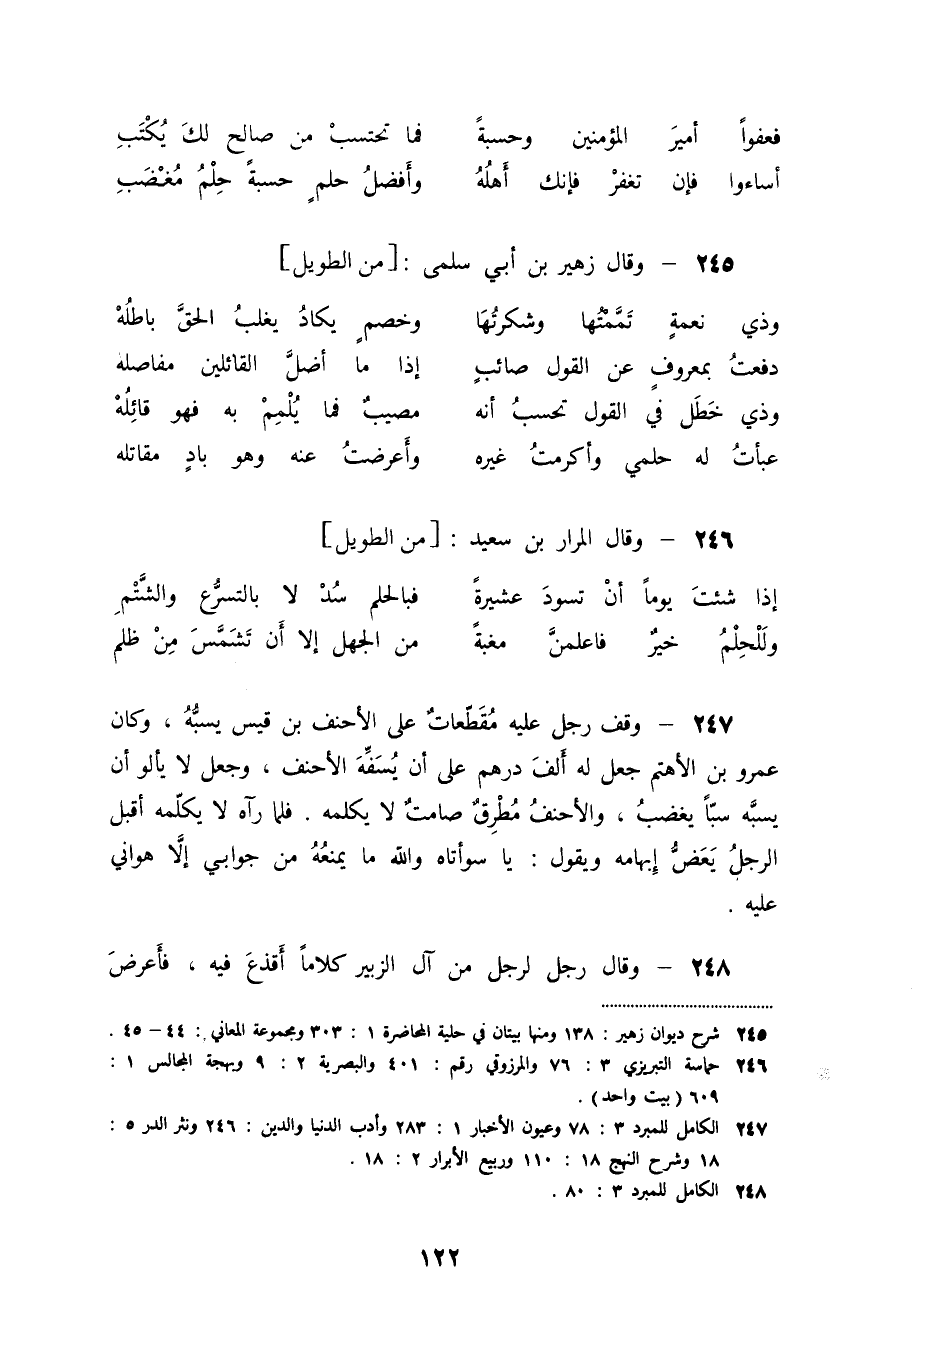 فعفواً أميرَ المؤمنين وحسبةً فما تحتسبْ من صالح لكَ يُكْتَبِ
أساءوا فإن تغفرْ فإنك أَهلُهُ وأَفضلُ حلمٍ حسبةً حِلْمُ مُغْضَبِ
٢٤٥ – وقال زهير بن أبي سلمى : [من الطويل]
وذي نعمةٍ تَمَّمْتُها وشكرتُهَا وخصمٍ يكادُ يغلبُ الحقَّ باطلُهْ
دفعتُ بمعروفٍ عن القول صائبٍ إذا ما أضلَّ القائلين مفاصله
وذي خَطَلٍ في القول تحسبُ أنه مصيبٌ فما يُلْمِمْ به فهو قائِلُهْ
عبأتُ له حلمي وأكرمتُ غيره وأَعرضتُ عنه وهو بادٍ مقاتله
٢٤٦ – وقال المرار بن سعيد : [من الطويل]
إذا شئتَ يوماً أنْ تسودَ عشيرةً فبالحلم سُدْ لا بالتسرُّع والشَّتْمِ
ولَلْحِلْمُ خيرٌ فاعلمنَّ مغبةً من الجهل إلا أَن تَشَمَّسَ مِنْ ظلم
٢٤٧ – وقف رجل عليه مُقَطّعاتٌ على الأحنف بن قيس يسبُّهُ ، وكان
عمرو بن الأهتم جعل له أَلفَ درهم على أن يُسَفِّهَ الأحنف ، وجعل لا يألو أن
يسبَّه سبّاً يغضبُ ، والأحنفُ مُطْرِقٌ صامتٌ لا يكلمه . فلما رآه لا يكلّمه أقبل
الرجلُ يَعَضُّ إبهامه ويقول : يا سوأتاه والله ما يمنعُهُ من جوابي إلَّا هواني
عليه .
٢٤٨ – وقال رجل لرجل من آل الزبير كلاماً أَقذعَ فيه ، فأَعرضَ
٢٤٥ شرح ديوان زهير : ١٣٨ ومنها بيتان في حلية المحاضرة ١ : ٣٠٣ ومجموعة المعاني : ٤٤ – ٤٥ .
٢٤٦ حماسة التبريزي ٣ : ٧٦ والمرزوقي رقم : ٤٠١ والبصرية ٢ : ٩ وبهجة المجالس ١ :
٦٠٩ (بيت واحد) .
٢٤٧ الكامل للمبرد ٣ : ٧٨ وعيون الأخبار ١ : ٢٨٣ وأدب الدنيا والدين : ٢٤٦ ونثر الدر ٥ :
١٨ وشرح النهج ١٨ : ١١٠ وربيع الأبرار ٢ : ١٨ .
٢٤٨ الكامل للمبرد ٣ : ٨٠ .
١٢٢